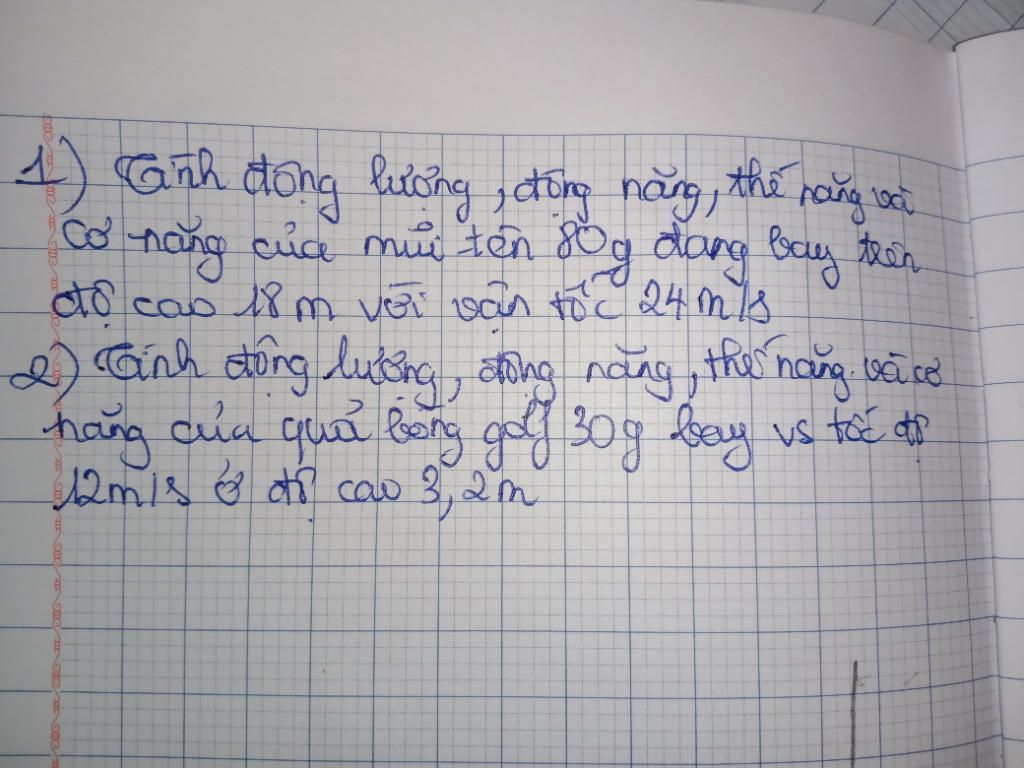 1) Tính động lượng, động năng, thế năng và
cơ năng của mũi tên 80g đang bay trên
độ cao 18m với vận tốc 24m/s
2) Tính động lượng, động năng, thế năng và cơ
năng của quả bóng golf 30g bay vs tốc độ
12m/s ở độ cao 3,2m